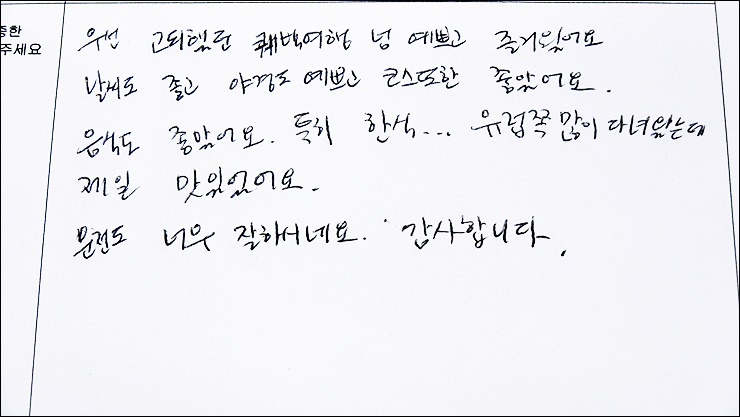 중한
주세요
우선 고되했던 퀘백여행 넘 예쁘고 즐거웠어요
날씨도 좋고 야경도 예쁘고 코스또한 좋았어요.
음식도 좋았어요. 특히 한식... 유럽쪽 많이 다녀왔는데
제일 맛있었어요.
운전도 너무 잘하시네요. 감사합니다.